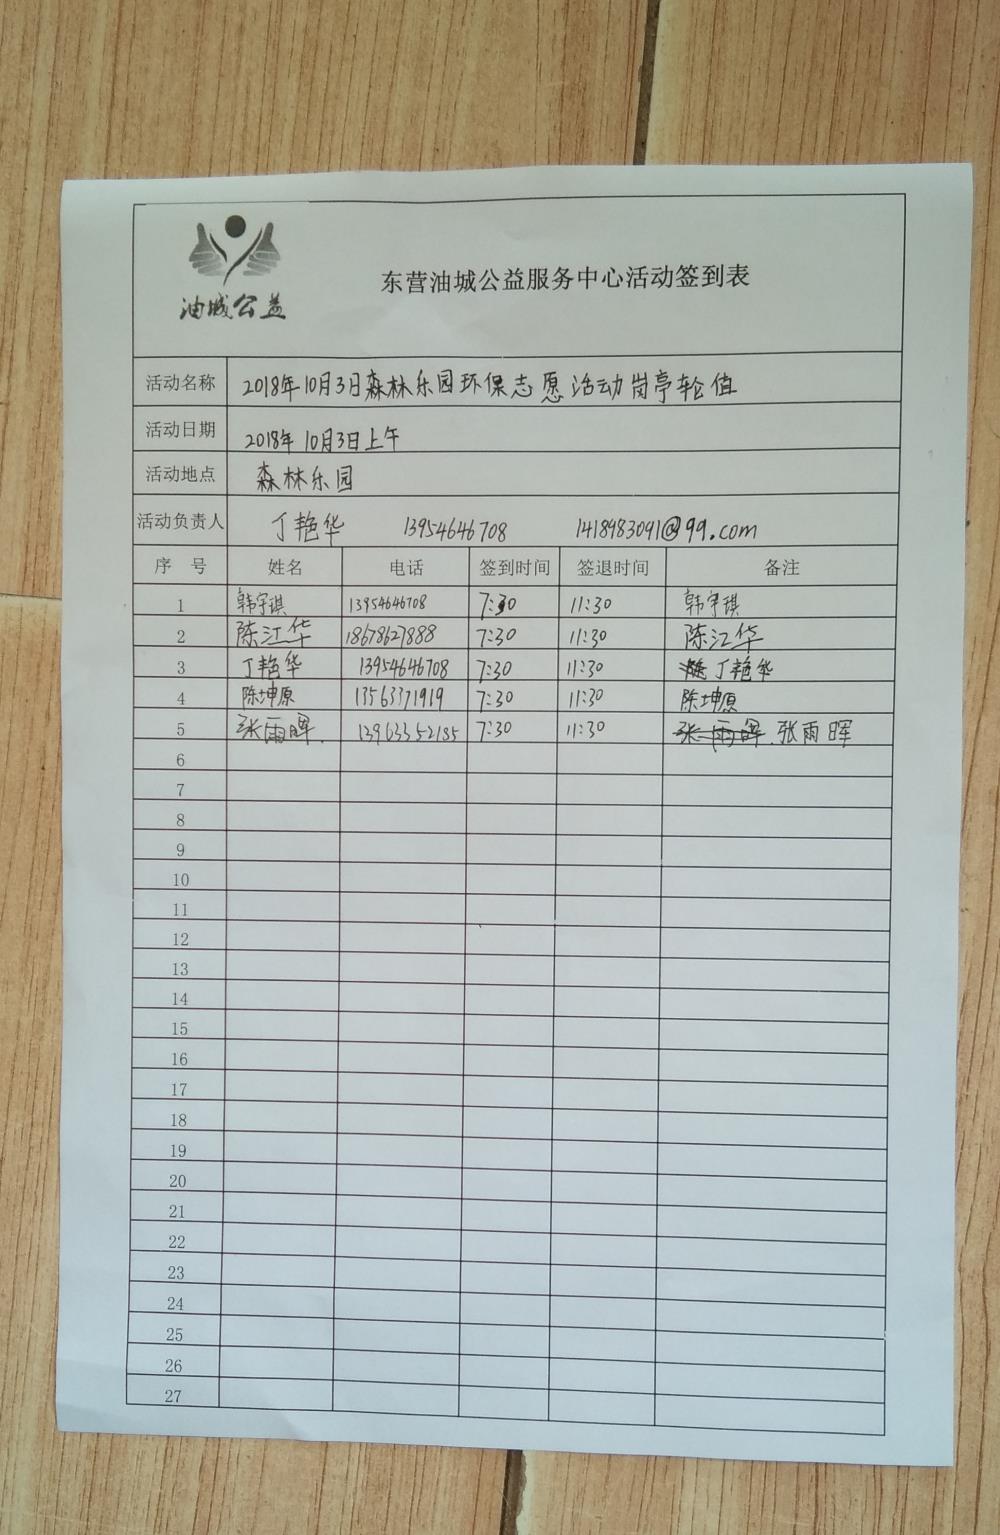 油城公益
东营油城公益服务中心活动签到表
活动名称 2018年10月3日森林乐园环保志愿活动岗亭轮值
活动日期 2018年10月3日上午
活动地点 森林乐园
活动负责人 丁艳华 13954646708 1418983091@qq.com
序 号 姓名 电话 签到时间 签退时间 备注
1 韩宇琪 13954646708 7:30 11:30 韩宇琪
2 陈江华 18678627888 7:30 11:30 陈江华
3 丁艳华 13954646708 7:30 11:30 丁艳华
4 陈坤原 13563371919 7:30 11:30 陈坤原
5 张雨晖 13963352185 7:30 11:30 张雨晖 张雨晖
6
7
8
9
10
11
12
13
14
15
16
17
18
19
20
21
22
23
24
25
26
27